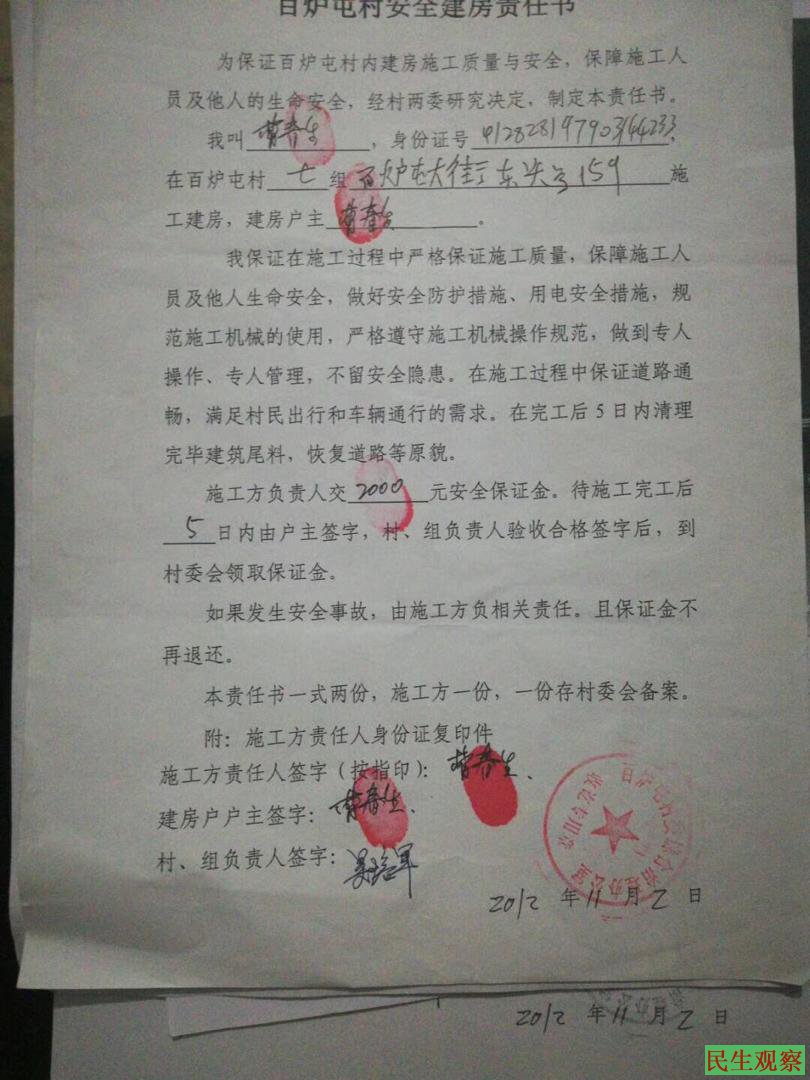 百炉屯村安全建房责任书
为保证百炉屯村内建房施工质量与安全，保障施工人
员及他人的生命安全，经村两委研究决定，制定本责任书。
我叫 春生，身份证号
在百炉屯村 七 组 百炉屯大街东头 159 施
工建房，建房户主 春生。
我保证在施工过程中严格保证施工质量，保障施工人
员及他人生命安全，做好安全防护措施、用电安全措施，规
范施工机械的使用，严格遵守施工机械操作规范，做到专人
操作、专人管理，不留安全隐患。在施工过程中保证道路通
畅，满足村民出行和车辆通行的需求。在完工后5日内清理
完毕建筑尾料，恢复道路等原貌。
施工方负责人交 2000 元安全保证金。待施工完工后
5 日内由户主签字，村、组负责人验收合格签字后，到
村委会领取保证金。
如果发生安全事故，由施工方负相关责任。且保证金不
再退还。
本责任书一式两份，施工方一份，一份存村委会备案。
附：施工方责任人身份证复印件
施工方责任人签字（按指印）： 春生
建房户户主签字： 春生
村、组负责人签字：
2012 年 11 月 2 日
2012 年 11 月 2 日
民生观察